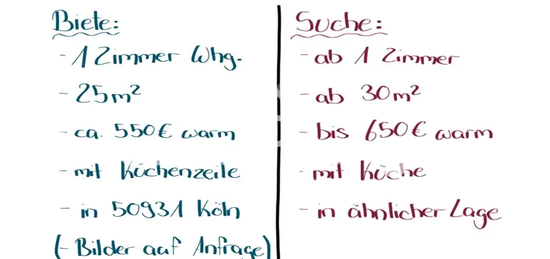 Biete:
- 1 Zimmer Whg.
- 25m²
- ca. 550€ warm
- mit Küchenzeile
- in 50931 Köln
(- Bilder auf Anfrage)
Suche:
- ab 1 Zimmer
- ab 30m²
- bis 650€ warm
- mit Küche
- in ähnlicher Lage